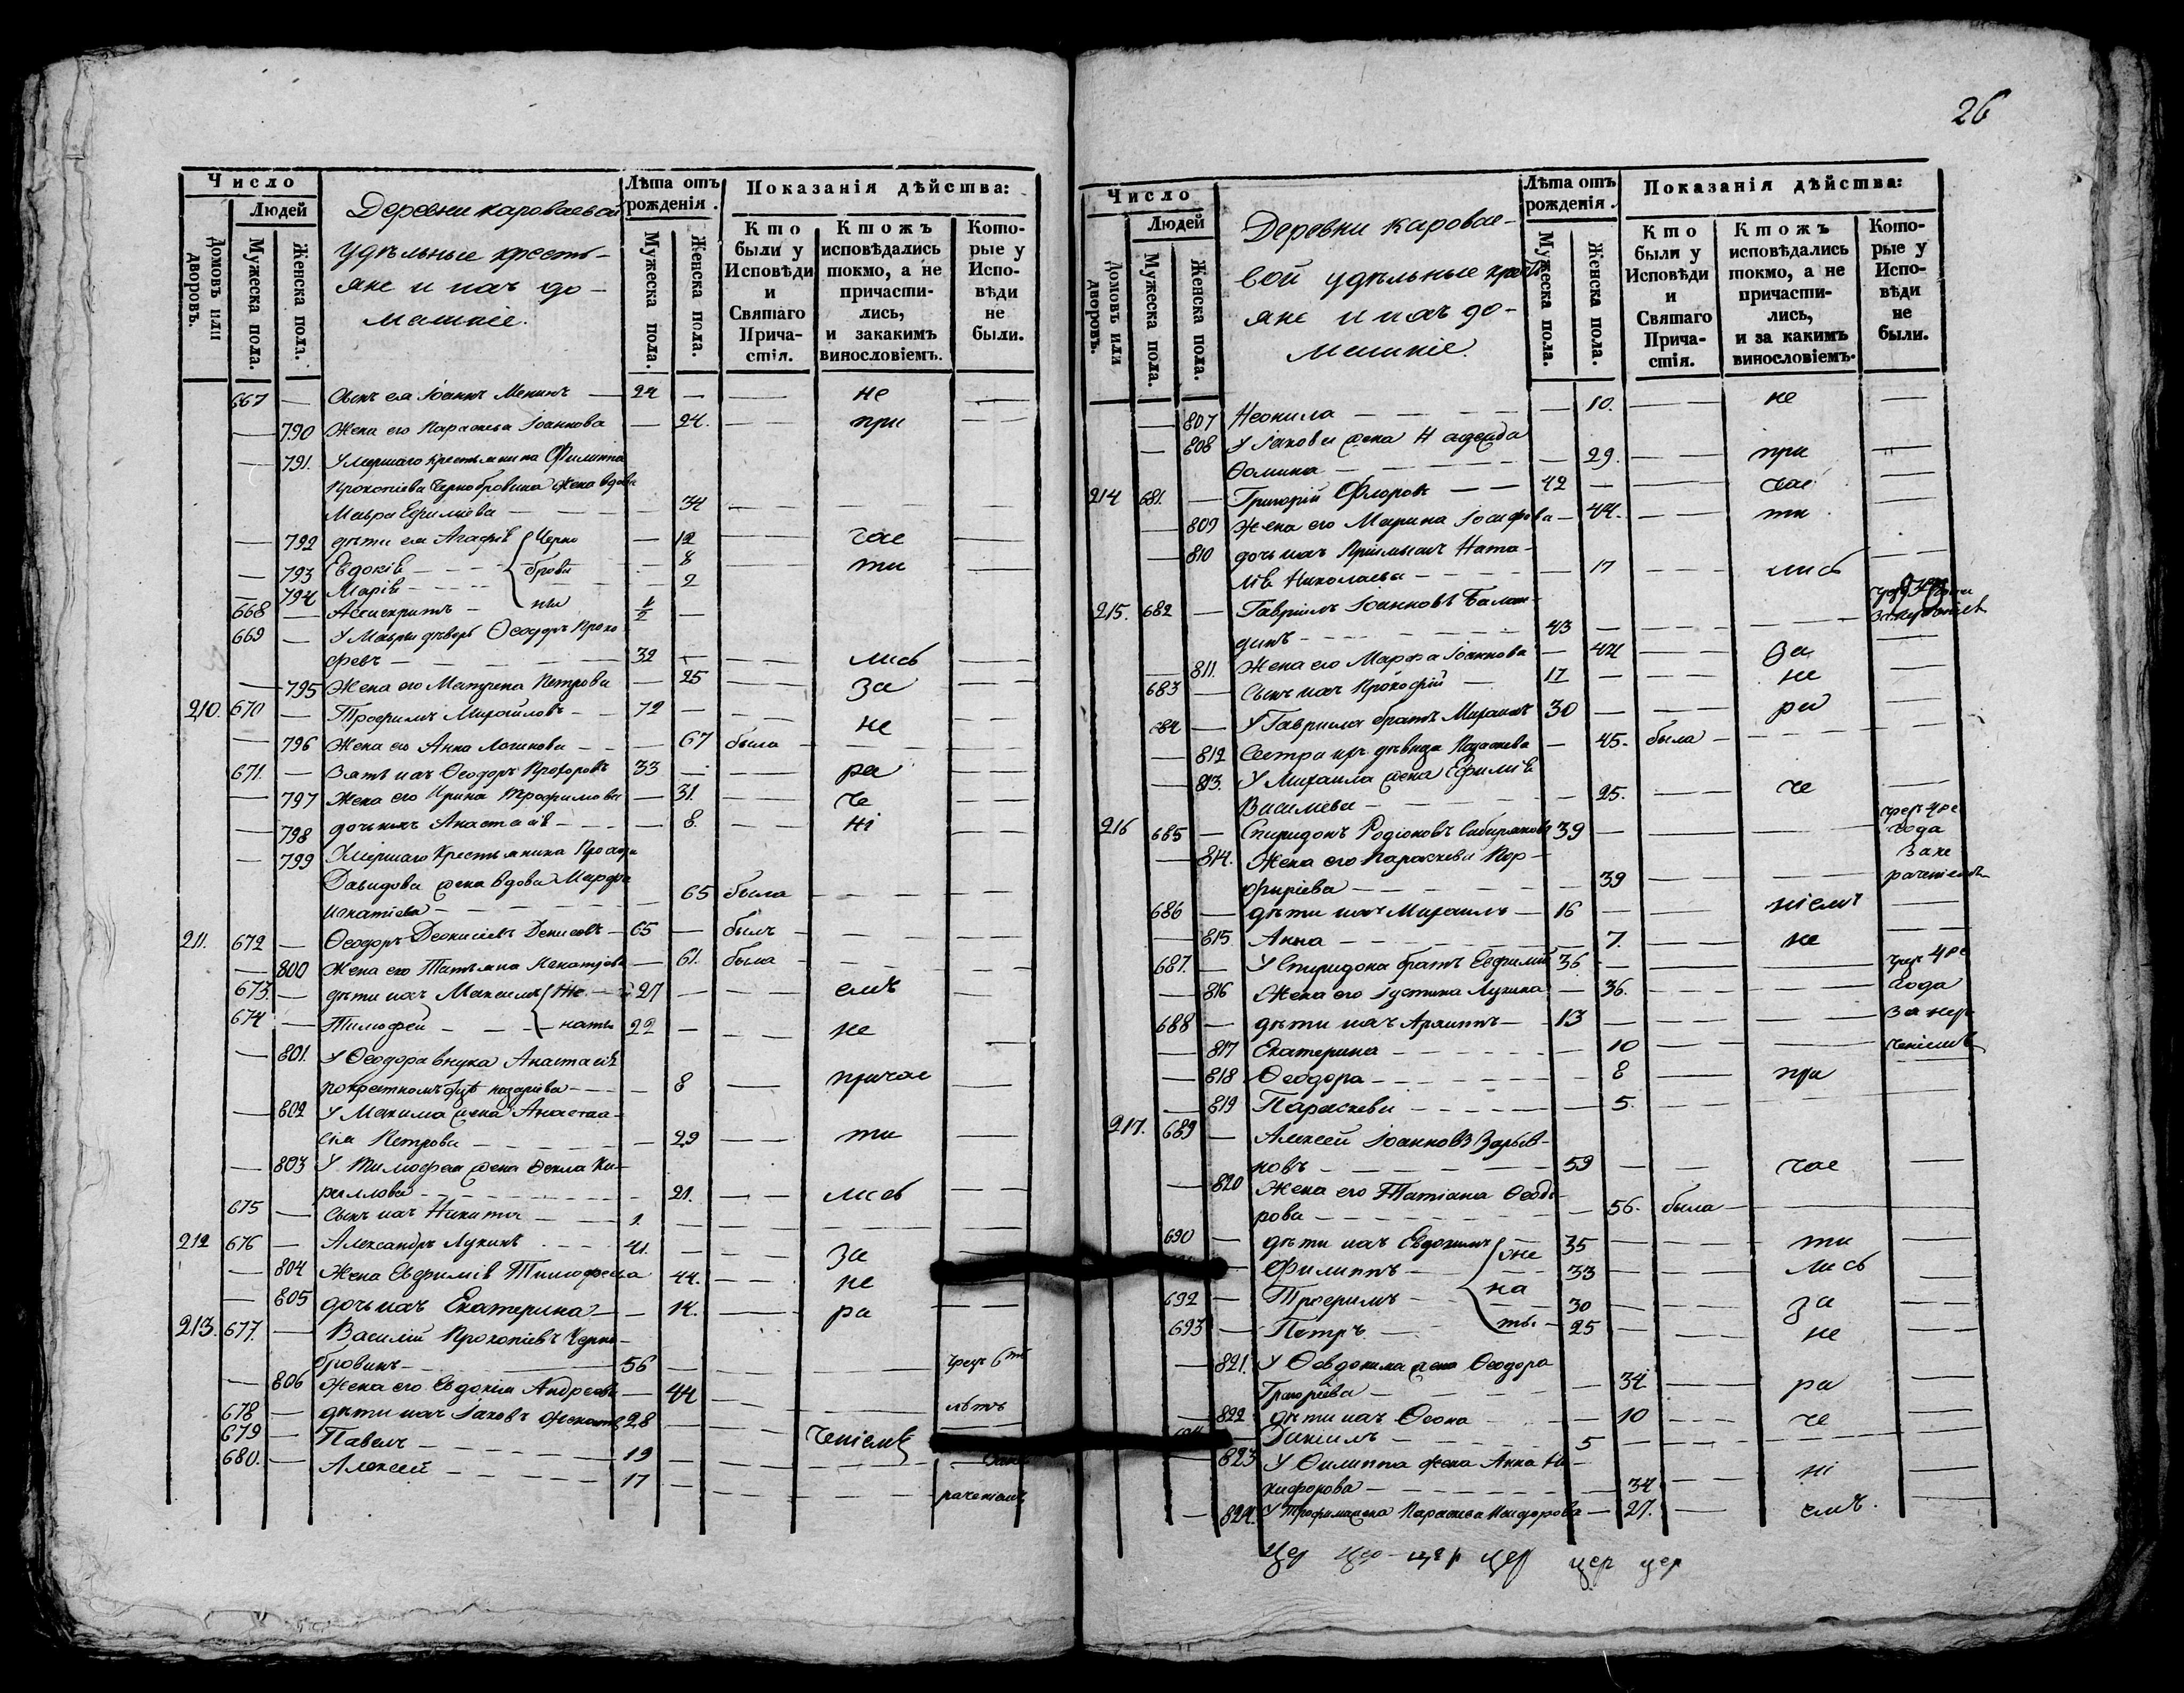 26
Число
Людей
Домовъ или дворовъ.
Мужеска пола.
Женска пола.
Деревни караваевой
удѣльные кресть-
яне и ихъ до-
машніе.
Лѣта отъ рожденія.
Мужеска пола.
Женска пола.
Показанія дѣйства:
Кто были у Исповѣди и Святаго Причастія.
Ктожъ исповѣдались токмо, а не причастились, и закакимъ винословіемъ.
Которые у Исповѣди не были.
667 — Сынъ ея Іоаннъ 24 — — не —
— 790 Жена его Параскева Іоаннова — 24. — при —
— 791. Умершаго крестьянина Филиппа
Прокопіева Чернобровина жена вдова
Мавра Ефимиева — 34 — —
— 792 дѣти ея Агафія Черно — 12 — час —
— 793 Евдокія — брови — 8 — ти —
— 794 Марія — ны — 2
668 — Асинкритъ — 1/2 —
669 — У Мавры дѣверь Ѳеодоръ Проко
февъ — 32 — — лись —
— 795 Жена его Матрена Петрова — 25 — за —
210. 670 — Трофимъ Михайловъ — 72 — — не —
— 796 Жена его Анна Логинова — 67 была — —
671. — Зять ихъ Ѳеодоръ Прохоровъ 33 — — ра —
— 797 Жена его Ирина Трофимова — 31. — че —
— 798 дочь ихъ Анастасія — 8. — ні —
— 799 Умершаго крестьянина
Давидова жена вдова Марфа
Игнатіева — 65 была — —
211. 672 — Ѳеодоръ Деонисіевъ Денисовъ — 65 — былъ — —
— 800 Жена его Татьяна Игнатіева — 61. была — —
673. — дѣти ихъ Максимъ Же — 27 — — емъ —
674 — Тимофей — наты 22 — — не —
— 801. У Ѳеодора внука Анастасія
покрестномъ отцѣ назаріева — 8 — причас —
— 802 У Максима жена Анаста-
сія Петрова — 29 — ти —
— 803 У Тимофея жена Ѳекла Ки-
риллова — 21. — лись —
675 — Сынъ ихъ Никита — 1. — —
212 676 — Александръ Лукинъ — 41. — — за —
— 804 Жена Евфимія Тимофеева 44. — не —
— 805 дочь ихъ Екатерина — 14. — ра —
213. 677. — Василій Прокопіевъ Черно-
бровинъ — 56 — — — чрезъ 6ть
— 806 Жена его Евдокія Андреева — 44 — — лѣтъ
678 — дѣти ихъ Іаковъ женатъ 28 — —
679 — Павелъ — 19 — — ченіемъ —
680. — Алексей — 17 — — — раченіемъ
Число
Людей
Домовъ или дворовъ.
Мужеска пола.
Женска пола.
Деревни каровае-
вой удѣльные кресть
яне и ихъ до-
машніе.
Лѣта отъ рожденія.
Мужеска пола.
Женска пола.
Показанія дѣйства:
Кто были у Исповѣди и Святаго Причастія.
Ктожъ исповѣдались токмо, а не причастились, и за какимъ винословіемъ.
Которые у Исповѣди не были.
— 807 Неонила — — 10. — не —
— 808 У Іакова жена Надежда
Ѳомина — — 29. — при —
214 681. — Григорій Флоровъ — 42 — — час —
— 809 Жена его Марина Іосифова — 44. — ти —
— 810 дочь ихъ Пріимышъ Ната-
лія Николаева — — 17 — лись —
215. 682 — Гавріилъ Іоанновъ Балан-
динъ — 43 — — —
— 811. Жена его Марфа Іоаннова — 44 — за —
683 — Сынъ ихъ Прокофій — 11 — — не —
684 — У Гавріила братъ Михаилъ 30 — — ра —
— 812 Сестра ихъ дѣвица Параскева — 45. была — —
— 813. У Михаила жена Ефимія
Васильева — 25. — че —
216 685 — Спиридонъ Родіоновъ Сибиряковъ 39 — — — чрез 4ре года
— 814. Жена его Параскева Пор- за не
фиріева — 39 — — раченіемъ
686 — дѣти ихъ Михаилъ — 16 — — ніемъ —
— 815 Анна — 7. — не —
687. — У Спиридона братъ Евфимій 36 — — — чрез 4ре
— 816 Жена его Іустина Лукина — 36. — — года
688 — дѣти ихъ Архиппъ — 13 — — — за нера
— 817 Екатерина — 10 — — ченіемъ
— 818 Ѳеодора — 8 — при
— 819 Параскева — 5. —
217. 689 — Алексей Іоанновъ
новъ — 59 — — час —
— 820 Жена его Татіана Ѳеодо-
рова — 56. была —
690 — дѣти ихъ Евдокимъ же 35 — — ти —
Филиппъ — 33 — — лись —
692 — Трофимъ — на 30 — — за —
693 — Петръ — ты. 25 — — не —
— 821. У Ѳевдокима жена Ѳеодора
Григоріева — 34 — ра —
— 822 дѣти ихъ Ѳеона — 10 — че —
Даніилъ — 5 — —
823 У Филиппа жена Анна Ни-
кифорова — 34 — ні —
— 824. У Трофима жена Параскева — 27. — емъ.
Цер Цер цер цер цер цер